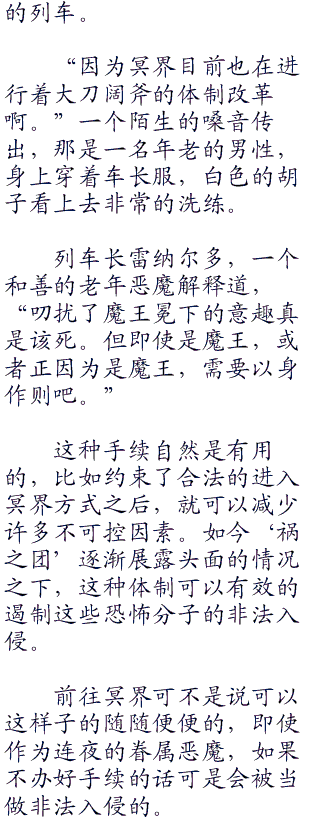 的列车。
“因为冥界目前也在进
行着大刀阔斧的体制改革
啊。”一个陌生的嗓音传
出，那是一名年老的男性，
身上穿着车长服，白色的胡
子看上去非常的洗练。
列车长雷纳尔多，一个
和善的老年恶魔解释道，
“叨扰了魔王冕下的意趣真
是该死。但即使是魔王，或
者正因为是魔王，需要以身
作则吧。”
这种手续自然是有用
的，比如约束了合法的进入
冥界方式之后，就可以减少
许多不可控因素。如今‘祸
之团’逐渐展露头面的情况
之下，这种体制可以有效的
遏制这些恐怖分子的非法入
侵。
前往冥界可不是说可以
这样子的随随便便的，即使
作为连夜的眷属恶魔，如果
不办好手续的话可是会被当
做非法入侵的。